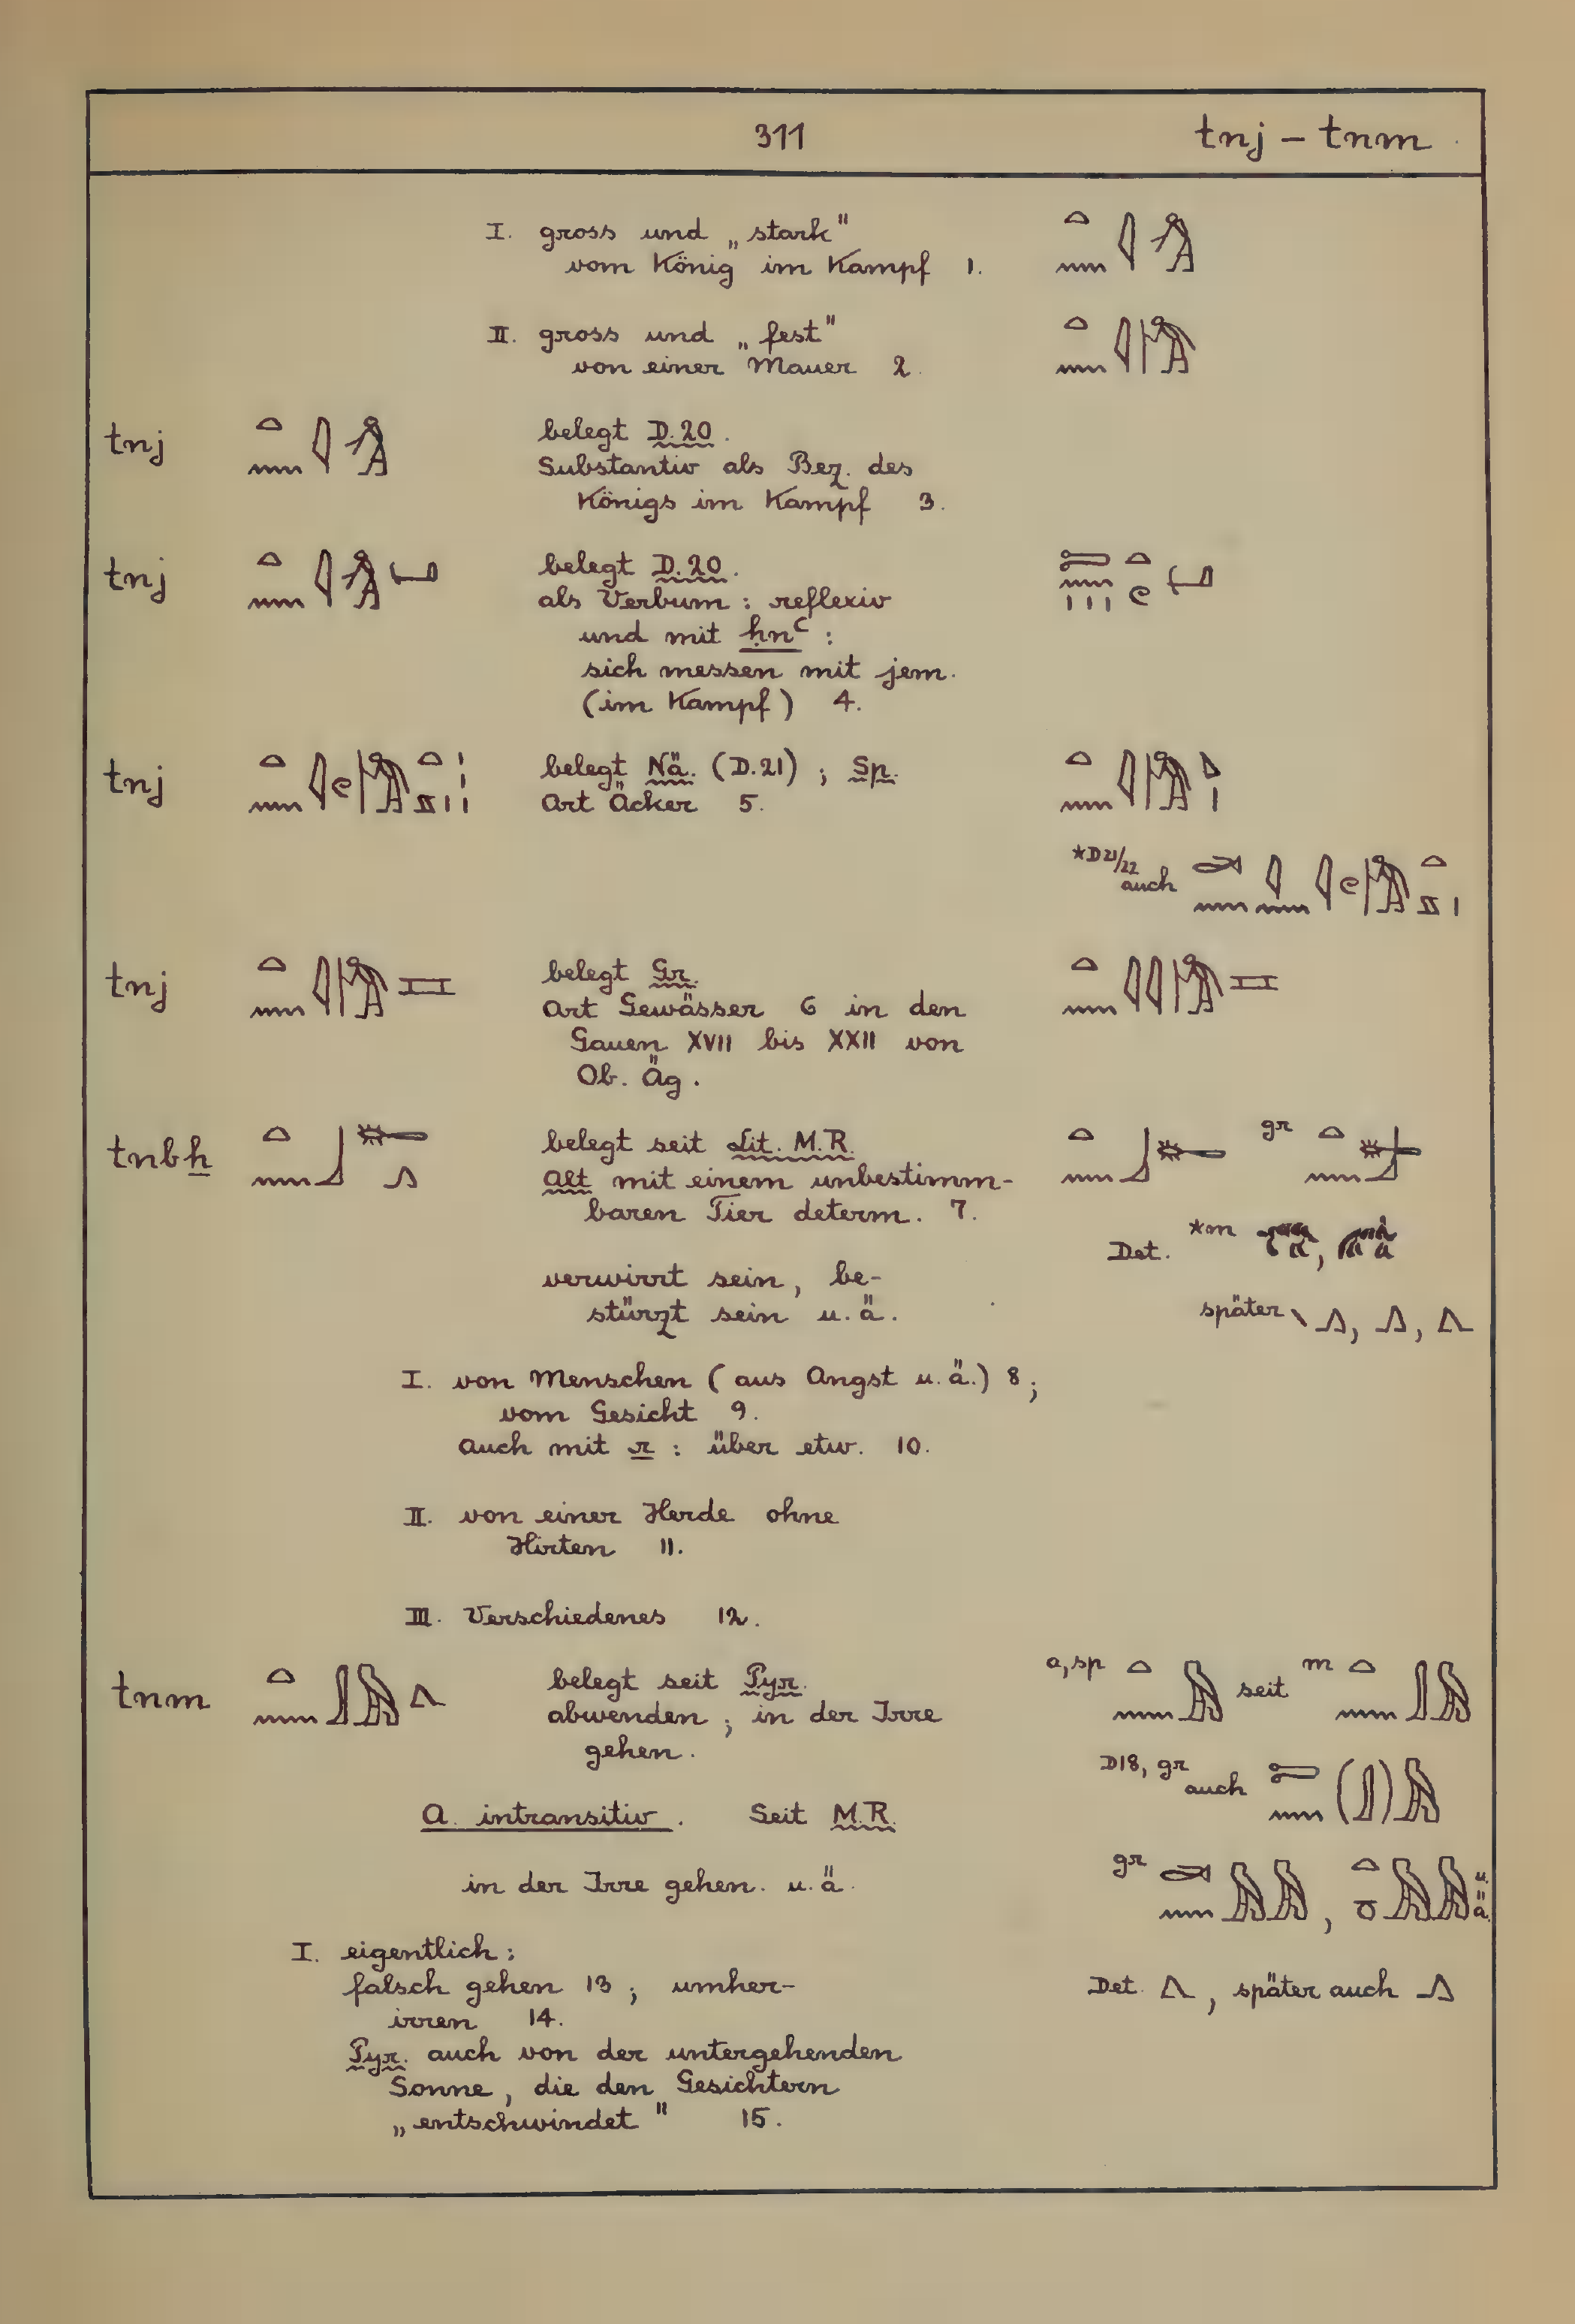 311 tnj – tnm
I. gross und „stark"
vom König im Kampf 1.
II. gross und „fest"
von einer Mauer 2.
tnj belegt D.20.
Substantiv als Bez. des
Königs im Kampf 3.
tnj belegt D.20.
als Verbum : reflexiv
und mit ḥnꜥ :
sich messen mit jem.
(im Kampf) 4.
tnj belegt Nä. (D.21) ; Sp.
Art Äcker 5.
*D21/22
auch
tnj belegt Gr.
Art Gewässer 6 in den
Gauen XVII bis XXII von
Ob. Äg.
tnbẖ belegt seit Lit. M.R. gr
Alt mit einem unbestimm-
baren Tier determ. 7.
Det. *m
verwirrt sein, be-
stürzt sein u. ä.
später
I. von Menschen (aus Angst u. ä.) 8 ;
vom Gesicht 9.
auch mit r : über etw. 10.
II. von einer Herde ohne
Hirten 11.
III. Verschiedenes 12.
tnm belegt seit Pyr. a, sp seit m
abwenden ; in der Irre
gehen.
D18, gr auch
A. intransitiv. Seit M.R.
in der Irre gehen. u. ä.
gr , u. ä.
I. eigentlich :
falsch gehen 13 ; umher-
irren 14.
Det. , später auch
Pyr. auch von der untergehenden
Sonne, die den Gesichtern
„entschwindet" 15.